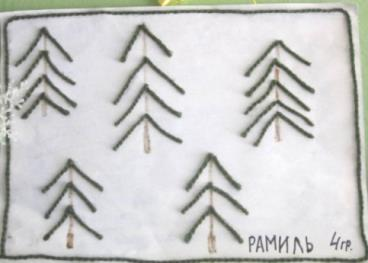 РАМИЛЬ 4гр.